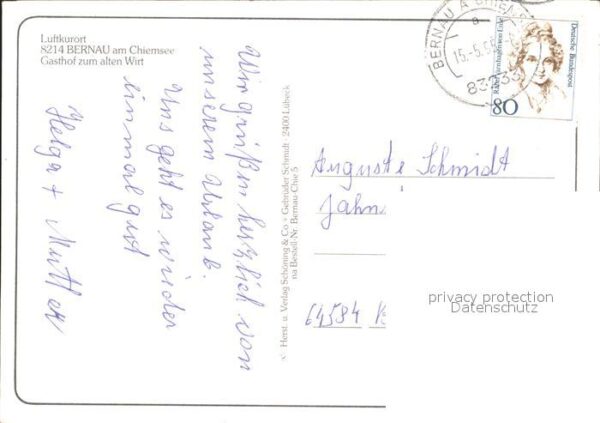 Luftkurort
8214 BERNAU am Chiemsee
Gasthof zum alten Wirt
Wir grüßen herzlich von
unserem Urlaub.
Uns geht es wieder
einmal gut
Helga +
Herst. u. Verlag Schöning & Co + Gebrüder Schmidt · 2400 Lübeck
na Bestell-Nr. Bernau-Chie 5
BERNAU A CHI
a
15.-5.
83233
Deutsche Bundespost
80
Auguste Schmidt
Jahn
64584
privacy protection
Datenschutz